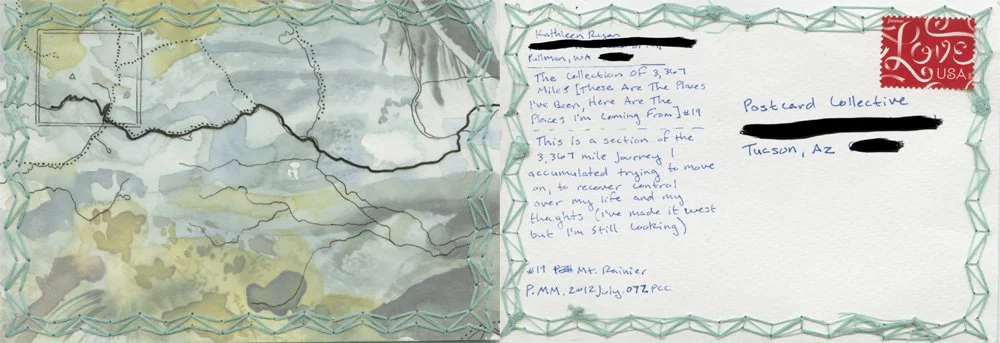 Kathleen Ryan
Pullman, WA
The Collection Of 3,367
Miles [These Are The Places
I've Been, Here Are The
Places I'm Coming From] #19
This is a section of the
3,367 mile journey I
accumulated trying to move
on, to recover control
over my life and my
thoughts (I've made it west
but I'm still looking)
#19 Mt. Rainier
P.MM.2012July.077.PCC
Forever
Love
USA
Postcard Collective
Tucson, Az